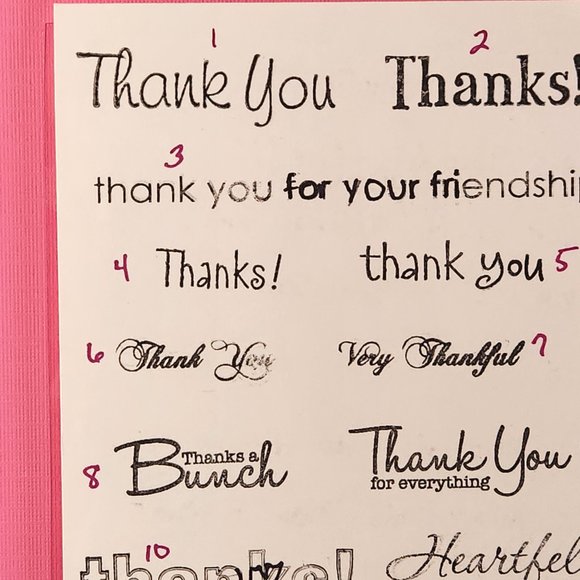 1 2
Thank You Thanks!
3
thank you for your friendship
4 Thanks! thank you 5
6 Thank You Very Thankful 7
8 Thanks a Bunch Thank You for everything
10
thanks! Heartfel